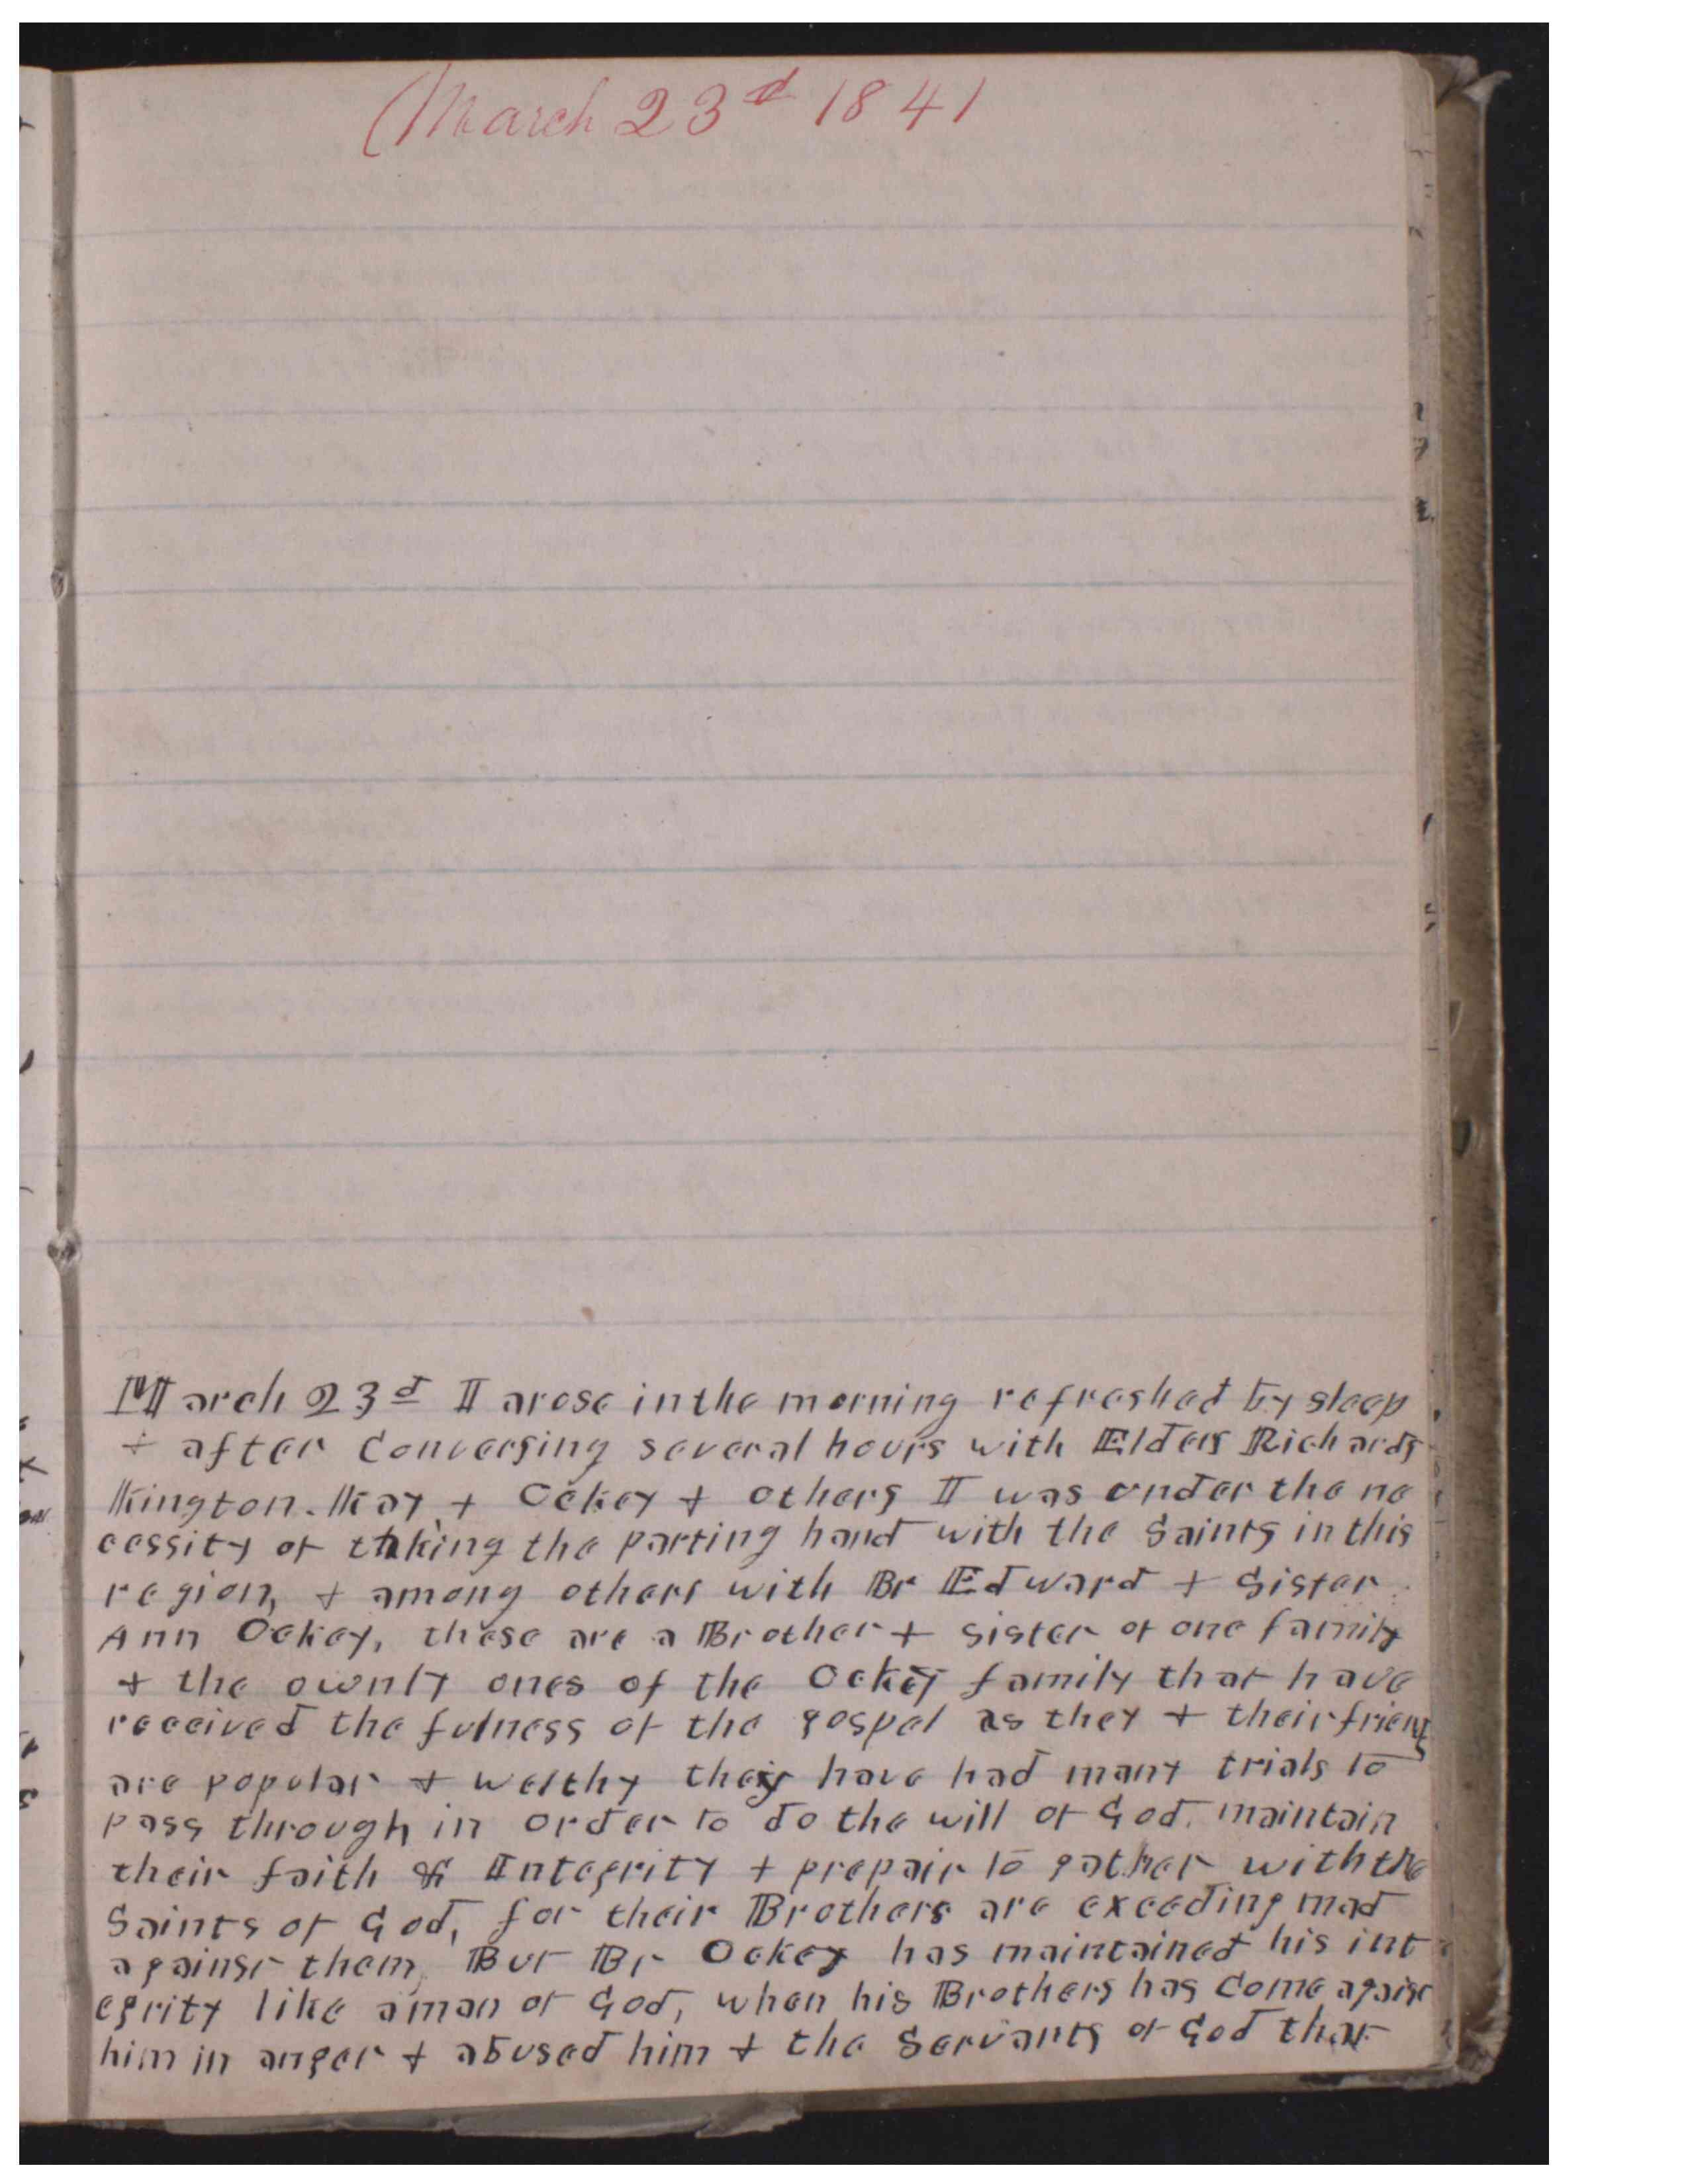 (March 23d 1841
March 23d I arose in the morning refreshed by sleep
+ after Conversing several hours with Elders Richards
Kington. Kay + Ockey + others I was under the ne
cessity of taking the parting hand with the Saints in this
region, + among others with Br Edward + Sister
Ann Ockey, these are a Brother + sister of one family
+ the ownly ones of the Ockey family that have
received the fulness of the gospel as they + their friends
are popular + welthy they have had many trials to
pass through in order to do the will of God. maintain
their faith & Integrity + prepair to gather with the
Saints of God, for their Brothers are exceeding mad
against them, But Br Ockey has maintained his int
egrity like a man of God, when his Brothers has Come against
him in anger + abused him + the Servants of God that